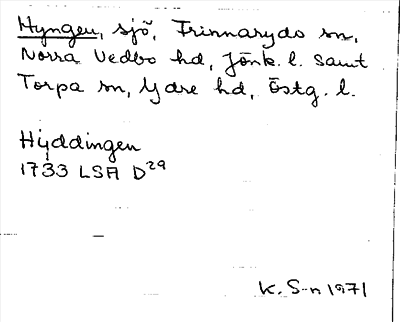 Hyngen, sjö, Frinnaryds sn,
Norra Vedbo hd, Jönk. l. samt
Torpa sn, Ydre hd, Östg. l.
Hyddingen
1733 LSA D29
K. S-n 1971